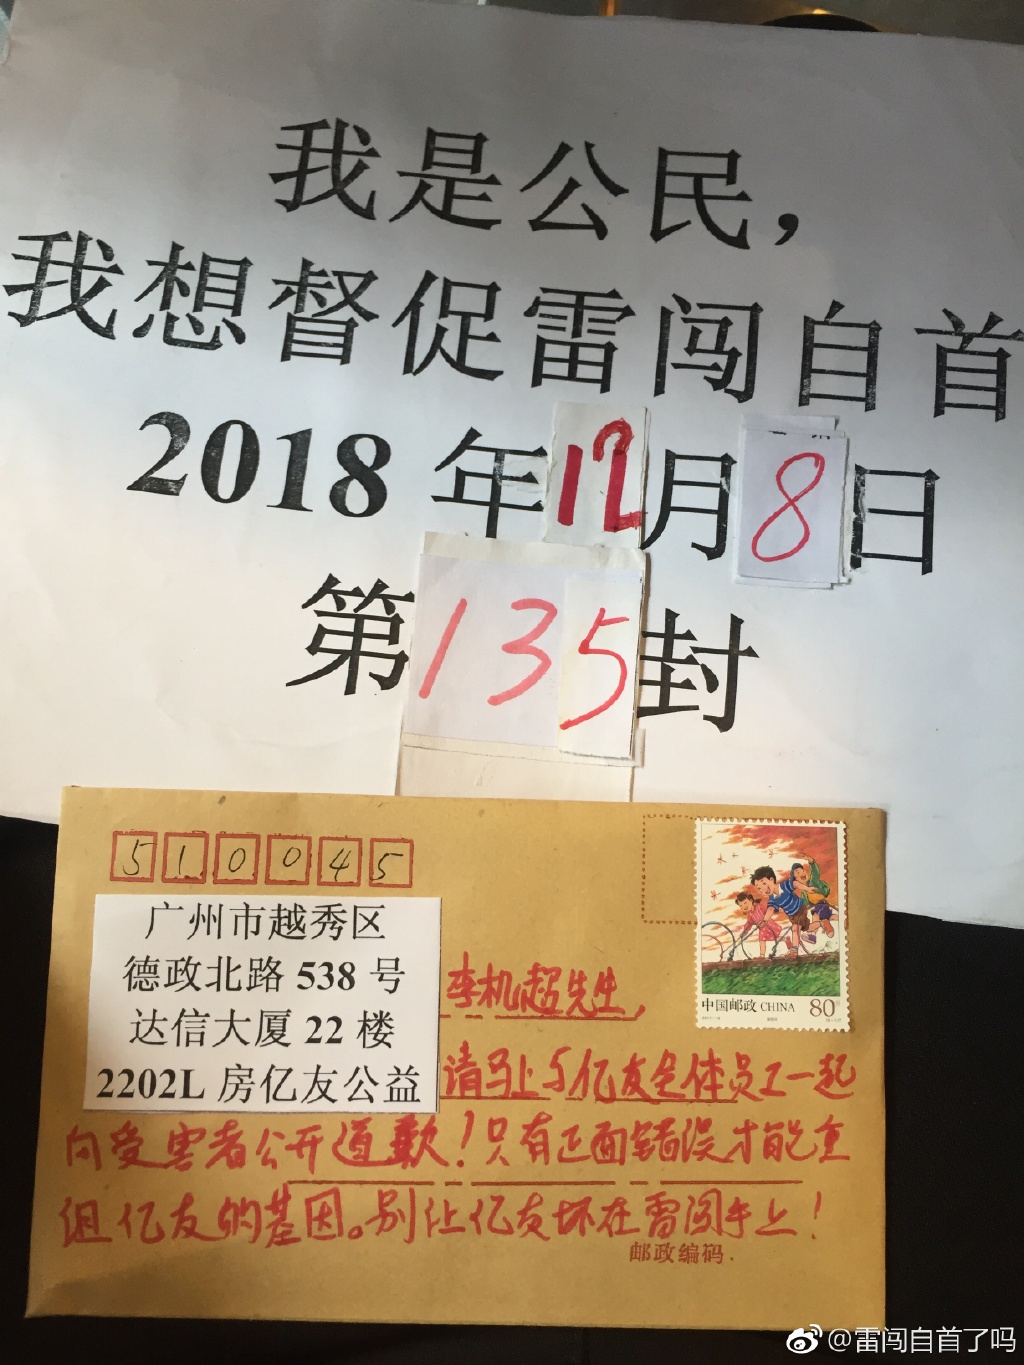 我是公民，
我想督促雷闯自首
2018年12月8日
第135封
510045
广州市越秀区
德政北路538号
达信大厦22楼
2202L房亿友公益
李机超先生，
请马上与亿友全体员工一起
向受害者公开道歉！只有正面错误才能重
组亿友的基因。别让亿友坏在雷闯手上！
中国邮政 CHINA 80
邮政编码
@雷闯自首了吗